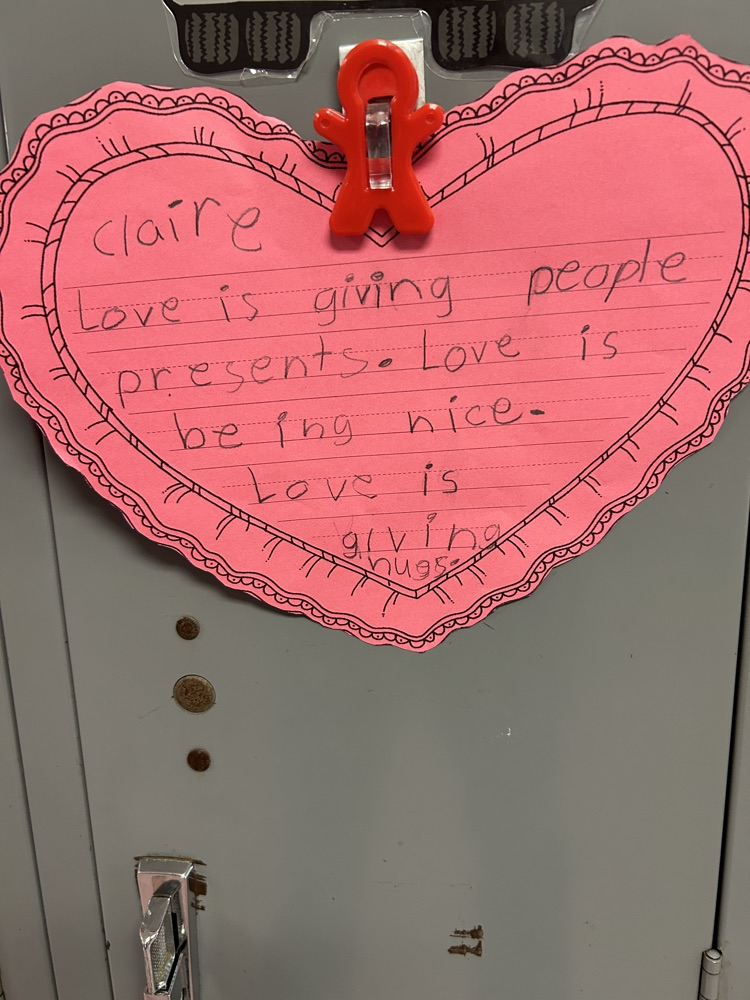 claire
Love is giving people
presents. Love is
being nice.
Love is
giving
hugs.